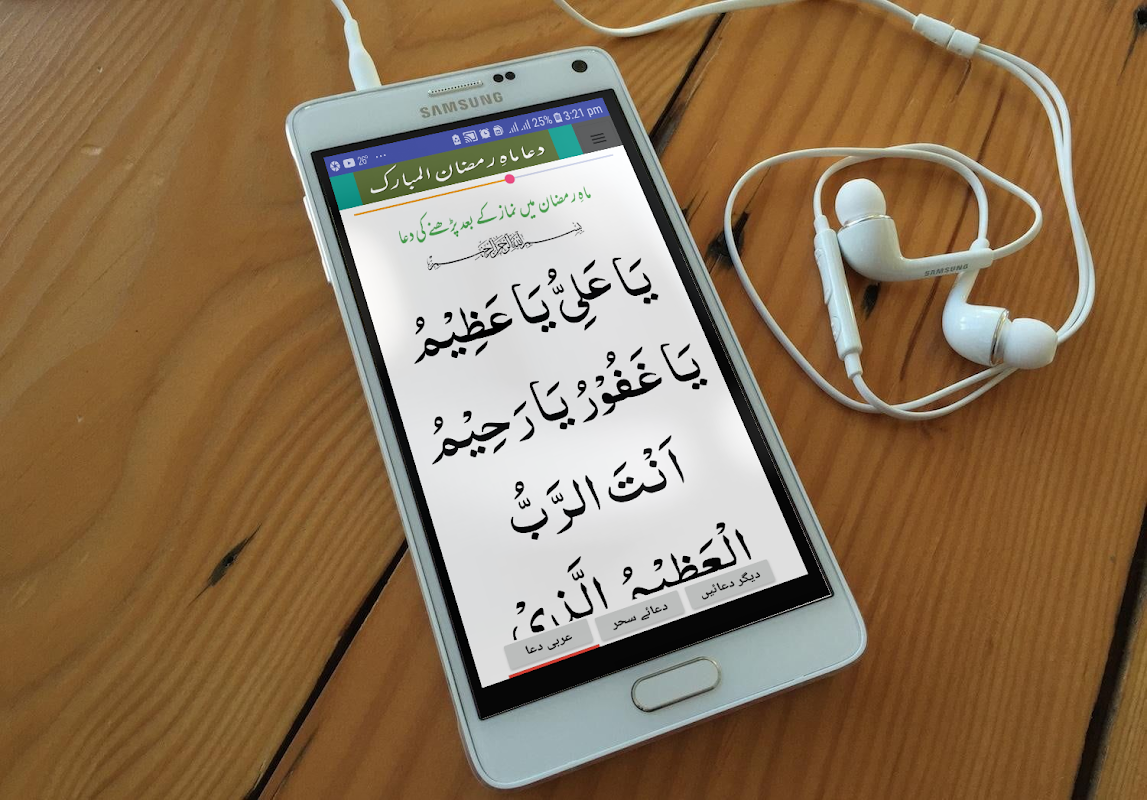 SAMSUNG
26° ... 25% 3:21 pm
دعا ماہِ رمضان المبارک
ماہِ رمضان میں نماز کے بعد پڑھنے کی دعا
بِسْمِ اللهِ الرَّحْمٰنِ الرَّحِيْمِ
يَا عَلِيُّ يَا عَظِيْمُ
يَا غَفُوْرُ يَا رَحِيْمُ
اَنْتَ الرَّبُّ
الْعَظِيْمُ الَّذِيْ
عربی دعا دعائے سحر دیگر دعائیں
SAMSUNG